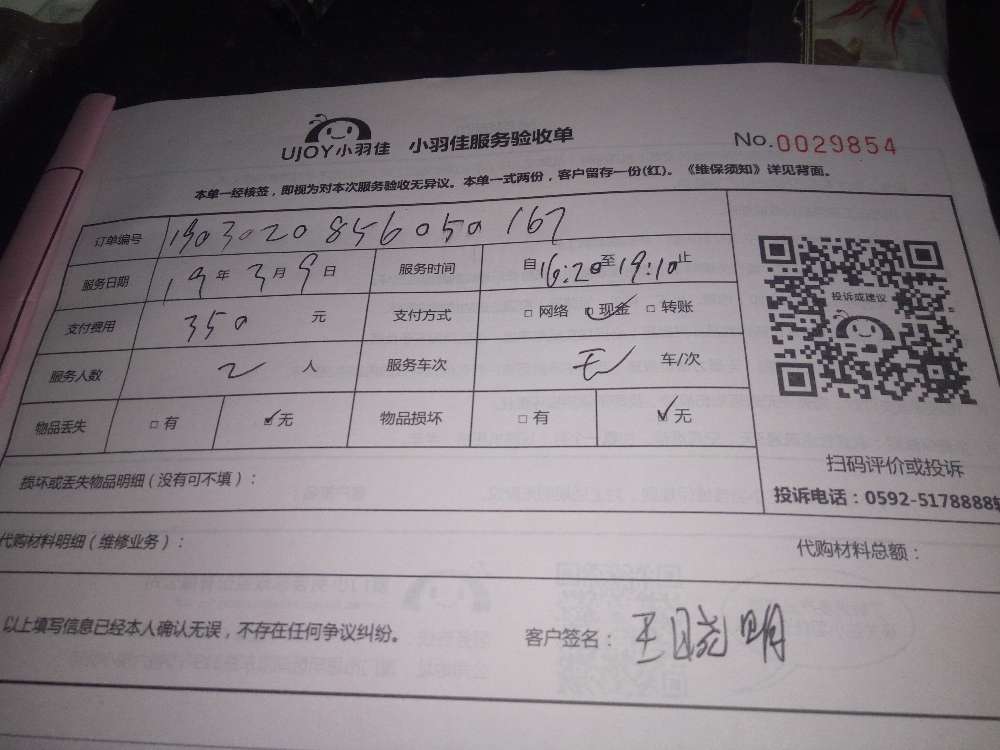 UJOY小羽佳 小羽佳服务验收单 No.0029854
本单一经核签，即视为对本次服务验收无异议。本单一式两份，客户留存一份(红)。《维保须知》详见背面。
订单编号 1903020856050167
服务日期 19年3月9日 服务时间 自16:20至19:10止
支付费用 350元 支付方式 □网络 现金 □转账
投诉或建议
服务人数 2人 服务车次 无 车/次
物品丢失 □有 ✓无 物品损坏 □有 ✓无
扫码评价或投诉
损坏或丢失物品明细（没有可不填）：
投诉电话：0592-5178888转
代购材料明细（维修业务）： 代购材料总额：
以上填写信息已经本人确认无误，不存在任何争议纠纷。 客户签名：王晓明